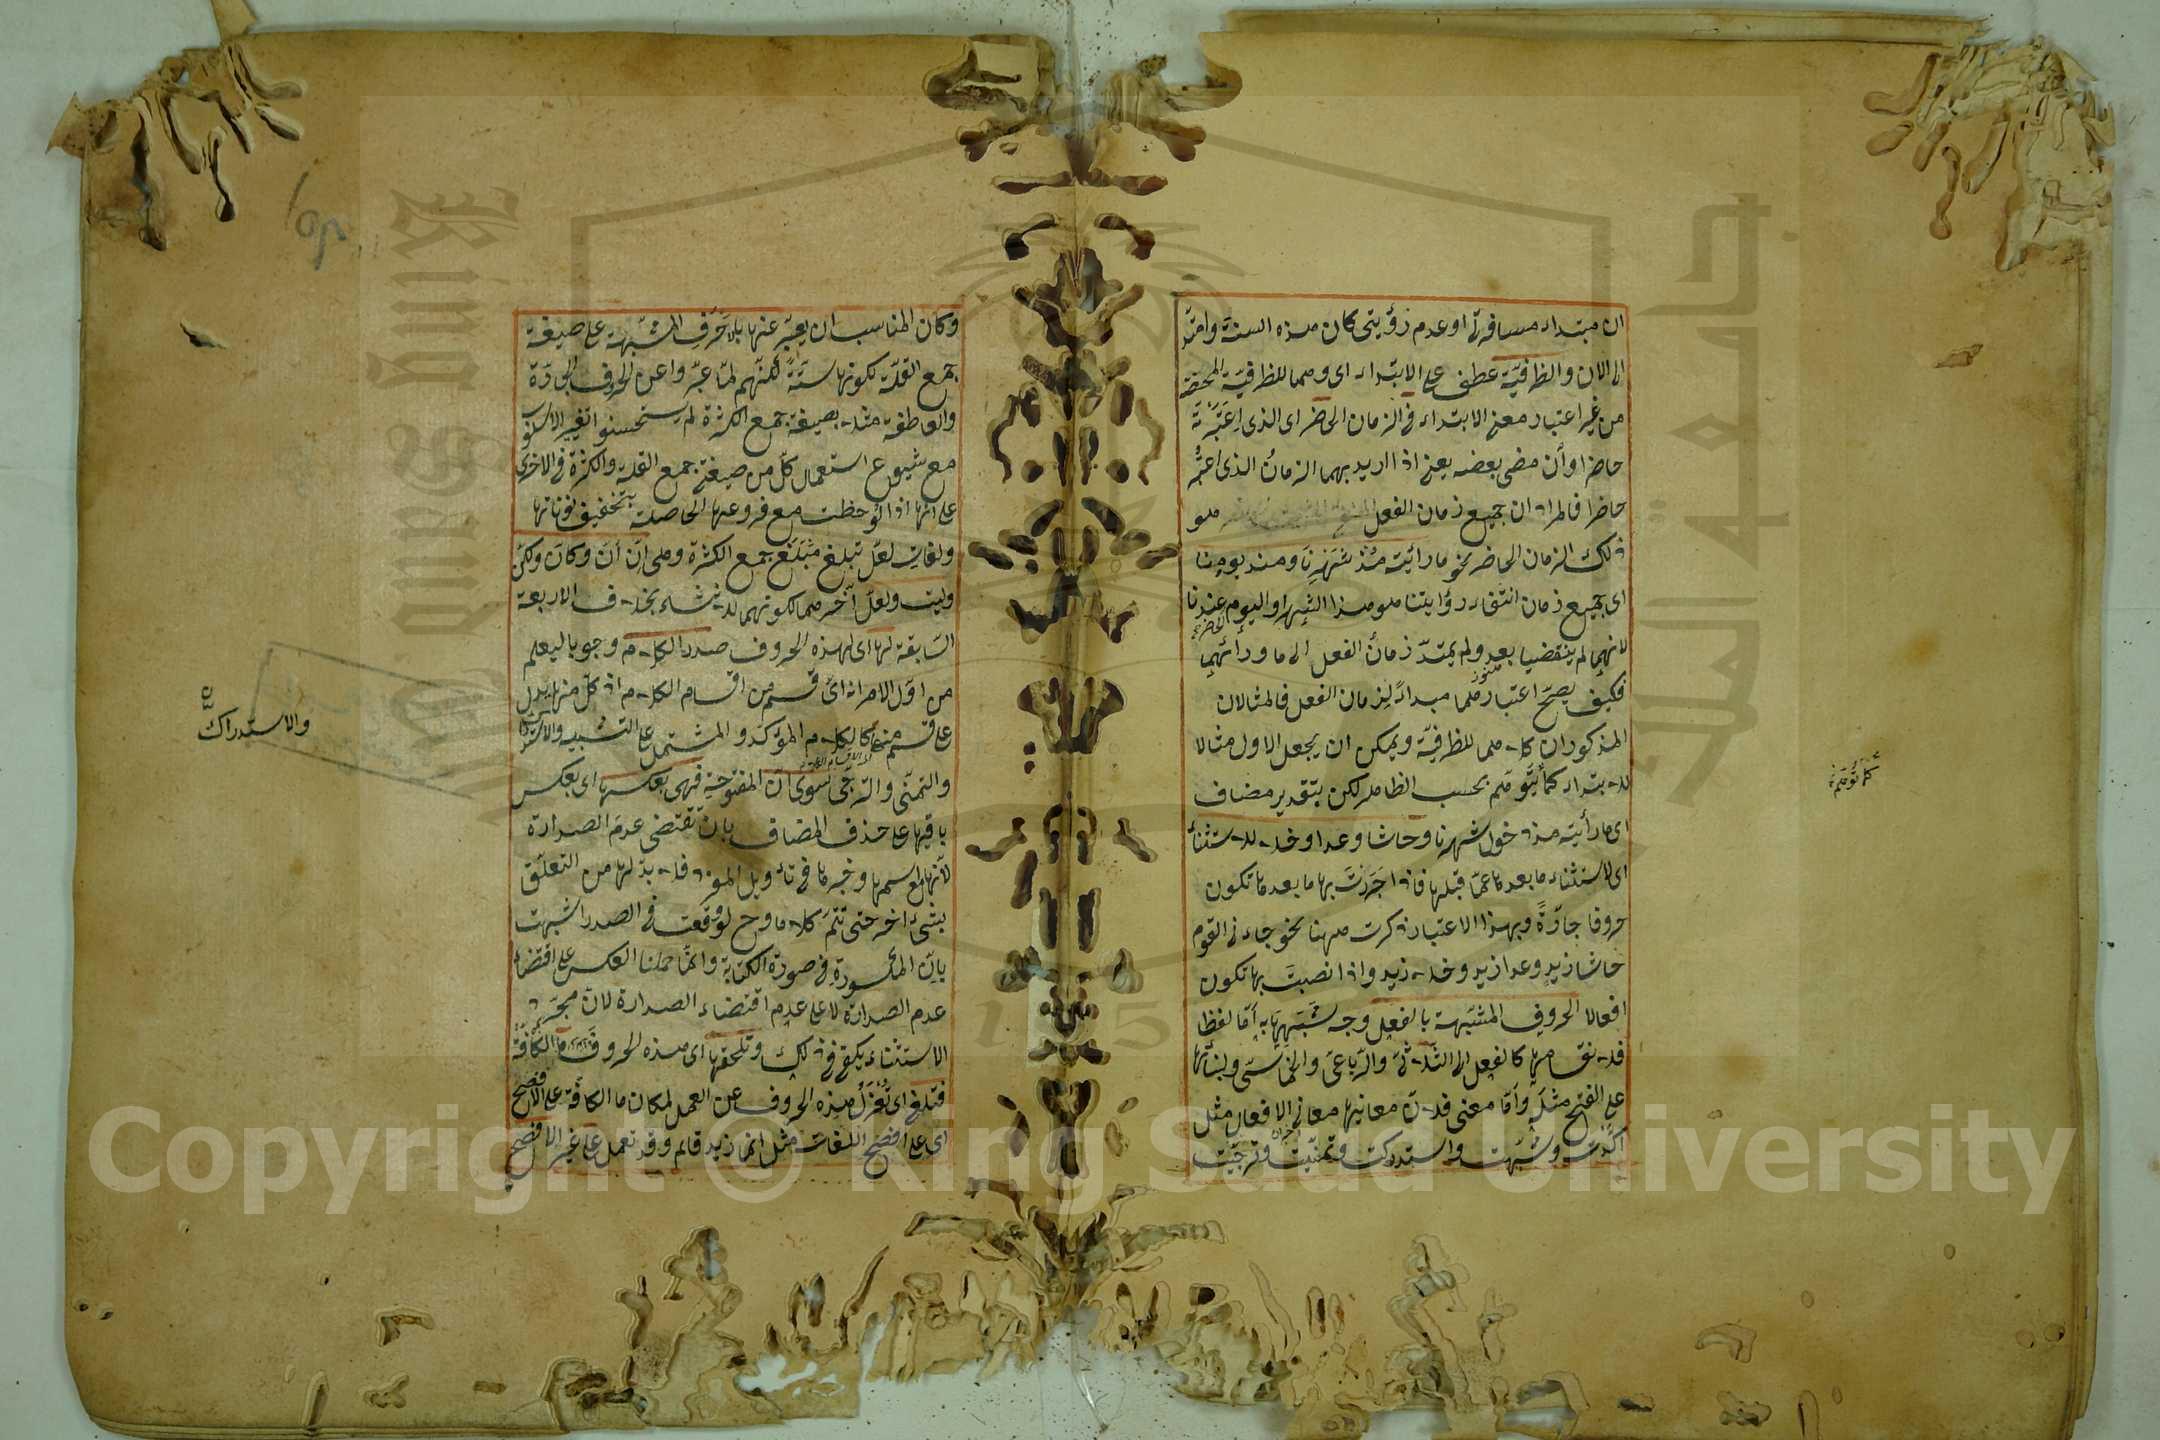 ان مبتداء مسافرتى او عدم رؤيتى كان هذه السنة وامتد
الى الان والظرفية عطف على الابتداء اى وهما للظرفية المحضة
من غير اعتبار معنى الابتداء فى الزمان الحاضر اى الذى اعتبرته
حاضرا وان مضى بعضه يعنى اذا اريد بهما الزمان الذى اعتبر
حاضرا فالمراد ان جميع زمان الفعل هو
ذلك الزمان الحاضر نحو ما رايته مذ شهرنا ومنذ يومنا
اى جميع زمان انتفاء رؤيتنا هو هذا الشهر او اليوم عندنا
لانهما لم ينقضيا بعد ولم يمتد زمان الفعل الى ما ورائهما
فكيف يصح اعتبارهما مبداء لزمان الفعل فالمثالان
المذكوران كلاهما للظرفية ويمكن ان يجعل الاول مثالا
للابتداء كما يتوهم بحسب الظاهر لكن بتقدير مضاف
اى ما رأيته مذ دخول شهرنا وحاشا وعدا وخلا للاستثناء
اى لاستثناء ما بعدها عما قبلها فاذا جررت بها ما بعدها تكون
حروفا جارة وبهذا الاعتبار ذكرت ههنا نحو جاءنى القوم
حاشا زيد وعدا زيد وخلا زيد واذا نصبت بها تكون
افعالا الحروف المشبهة بالفعل وجه شبهها به أما لفظا
فلانقسامها كالفعل الى الثلاثى والرباعى والخماسى وبنائها
على الفتح مثله وأما معنى فلان معانيها معانى الافعال مثل
اكدت وشبهت واستدركت وتمنيت وترجيت
وكان المناسب ان يعبر عنها بالاحرف المشبهة على صيغة
جمع القلة لكونها ستة لكنهم لما عبروا عن الحروف الجارة
والعاطفة مثلا بصيغة جمع الكثرة لم يستحسنوا تغيير الاسلوب
مع شيوع استعمال كل من صيغة جمع القلة والكثرة فى الاخرى
على انها اذا لوحظت مع فروعها الحاصلة بتخفيف نوناتها
ولغات لعل تبلغ مبلغ جمع الكثرة وهى ان أن وكان ولكن
وليت ولعل آخرهما لكونهما للانشاء بخلاف الاربعة
السابقة لها اى لهذه الحروف صدر الكلام وجوبا ليعلم
من اول الامر انه اى قسم من اقسام الكلام اذ كل منها يدل
على قسم منه كالكلام المؤكد والمشتمل على التشبيه والاستدراك
والتمنى والترجى سوى ان المفتوحة فهى بعكسها اى بعكس
باقيها على حذف المضاف بان تقتضى عدم الصدارة
لانها مع اسمها وخبرها فى تأويل المفرد فلا بد لها من التعلق
بشئ اخر حتى تتم كلاما وح لو وقعت فى الصدر اشبهت
بان المكسورة فى صورة الكتابة وانما حملنا العكس على اقتضاء
عدم الصدارة لا على عدم اقتضاء الصدارة لان مجرد
الاستثناء يكفى فى ذلك وتلحقها اى هذه الحروف ما الكافة
فتلغى اى تعزل هذه الحروف عن العمل لمكان ما الكافة على الافصح
اى على افصح اللغات مثل انما زيد قائم وقد تعمل على غير الافصح
والاستدراك
كما توهم
Copyright © King Saud University